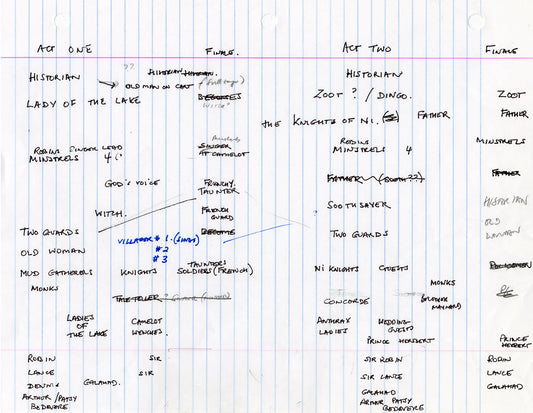 ACT ONE FINALE. ACT TWO FINALE
??
HISTORIAN HISTORIAN HISTORIAN
OLD MAN ON CART
LADY OF THE LAKE ZOOT ? / DINGO. ZOOT
WITCH?
THE KNIGHTS OF NI. FATHER FATHER
ROBINS SINGER LEAD SINGER ROBINS MINSTRELS
MINSTRELS 4 AT CAMELOT MINSTRELS 4
GOD'S VOICE FRENCHY. FATHER FATHER
TAUNTER
WITCH. FRENCH SOOTHSAYER HISTORIAN
GUARD ?
TWO GUARDS TWO GUARDS OLD
VILLAGER # 1. WOMAN
OLD WOMAN # 2
# 3 TAUNTERS
MUD GATHERERS KNIGHTS SOLDIERS (FRENCH) NI KNIGHTS GUESTS
MONKS MONKS
TALE TELLER
CONCORDE (BROTHER MAYNARD)
LADIES CAMELOT ANTHRAX WEDDING
OF WENCHES. LADIES GUESTS
THE LAKE PRINCE HERBERT PRINCE
HERBERT
ROBIN SIR SIR ROBIN ROBIN
LANCE SIR SIR LANCE LANCE
DENNIS GALAHAD. GALAHAD GALAHAD
ARTHUR / PATSY ARTHUR PATSY
BEDEVERE BEDEVERE